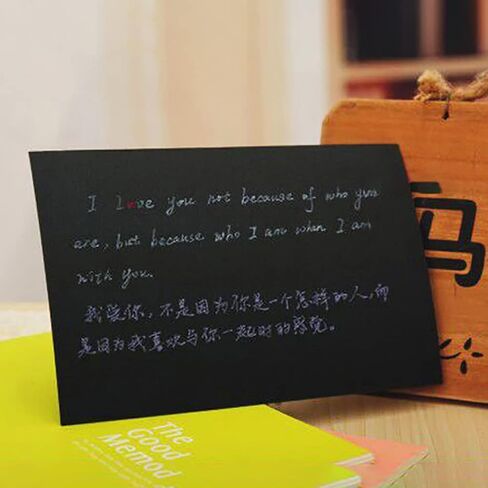 I Love you not because of who you
are, but because who I am when I am
with you.
我爱你，不是因为你是一个怎样的人，而
是因为我喜欢与你一起时的感觉。
马
The
Good
Memod